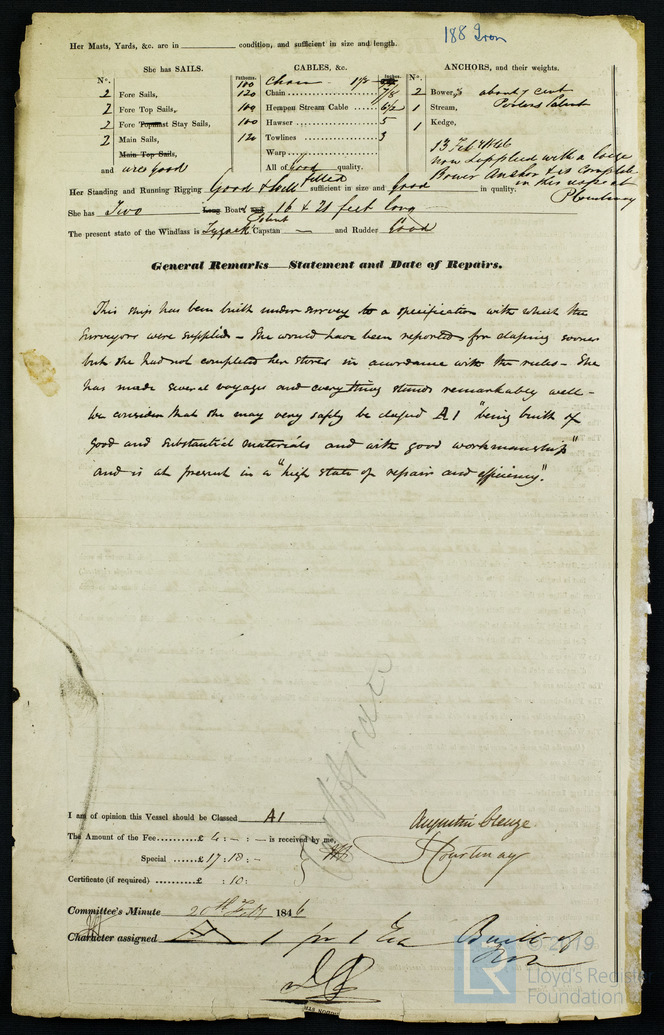 188 Iron
Her Masts, Yards, &c. are in condition, and sufficient in size and length.
She has SAILS.
CABLES, &c.
ANCHORS, and their weights.
No.
Fathoms.
Inches.
No.
100 Chain 1 1/8
2 Fore Sails, 120 Chain 7/8
2 Bowers, about 7 cwt
2 Fore Top Sails, 100 Hempen Stream Cable 6 1/2
1 Stream, Porters Patent
2 Fore Topmast Stay Sails, 100 Hawser 5
1 Kedge,
2 Main Sails, 120 Towlines 3
Main Top Sails, Warp
and are good All of good quality.
13 Feb 1846
now supplied with a large
Bower Anchor & is complete
in this respect
P Courtenay
Her Standing and Running Rigging Good & well fitted sufficient in size and good in quality.
She has Two Long Boats and 16 & 21 feet long
The present state of the Windlass is Tyzack Patent Capstan — and Rudder Good
General Remarks—Statement and Date of Repairs.
This ship has been built under survey to a specification with which the
Surveyors were supplied – She would have been reported for classing sooner
but she had not completed her stores in accordance with the rules – She
has made several voyages and every thing stands remarkably well –
We consider that she may very safely be classed A1 "being built of
good and substantial materials and with good workmanship"
and is at present in a "high state of repair and efficiency".
I am of opinion this Vessel should be Classed A1
The Amount of the Fee £ 4 : – : – is received by me,
Special £ 17 : 18 : –
Certificate (if required) £ : 10 :
Augustin Creuze
P Courtenay
Committee's Minute 20th Feby 1846
Character assigned A 1 for 1 Yea Built of
Iron
© 2019
LR
Lloyd's Register
Foundation